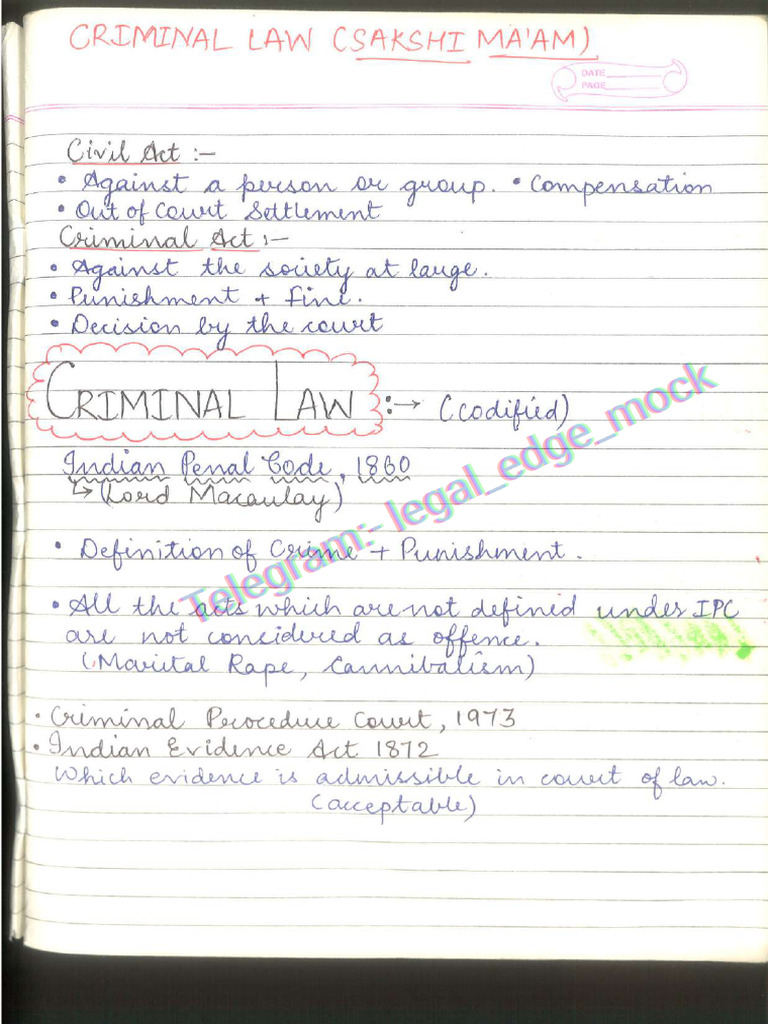 CRIMINAL LAW (SAKSHI MA'AM)
DATE
PAGE
Civil Act :-
• Against a person or group. • Compensation
• Out of Court Settlement
Criminal Act :-
• Against the society at large.
• Punishment + fine.
• Decision by the court
CRIMINAL LAW :→ (codified)
Indian Penal Code, 1860
↳ (Lord Macaulay)
• Definition of Crime + Punishment.
• All the acts which are not defined under IPC
are not considered as offence.
(Marital Rape, Cannibalism)
• Criminal Procedure Court, 1973
• Indian Evidence Act 1872
Which evidence is admissible in court of law.
(acceptable)
Telegram:- legal_edge_mock